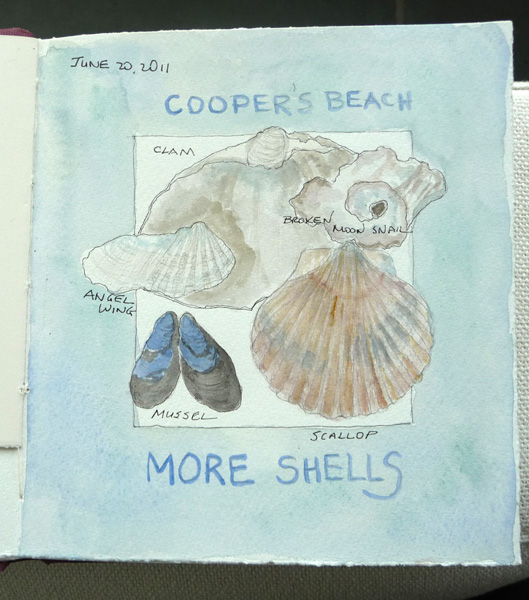 JUNE 20, 2011
COOPER'S BEACH
CLAM
BROKEN MOON SNAIL
ANGEL
WING
MUSSEL
SCALLOP
MORE SHELLS